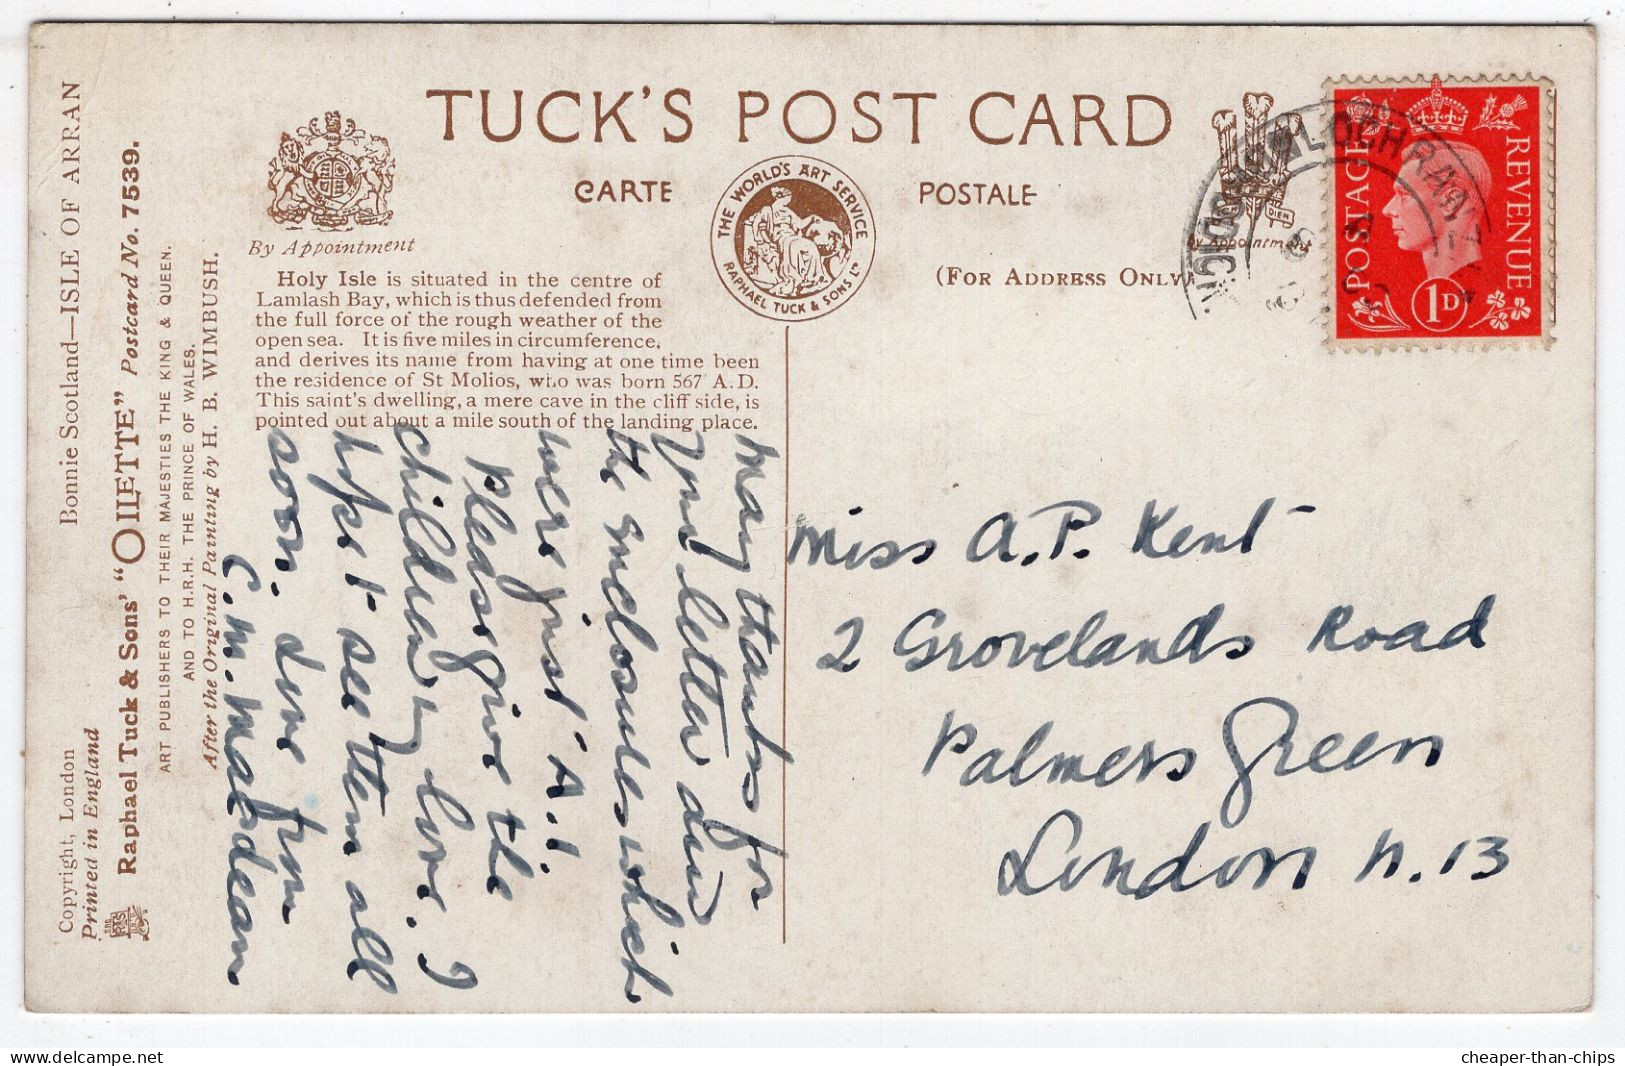 TUCK'S POST CARD
CARTE POSTALE
By Appointment
THE WORLD'S ART SERVICE
RAPHAEL TUCK & SONS LTD
DIEN
By Appointment
(FOR ADDRESS ONLY)
LOCHRANZA
POSTAGE
REVENUE
1D
Holy Isle is situated in the centre of
Lamlash Bay, which is thus defended from
the full force of the rough weather of the
open sea. It is five miles in circumference,
and derives its name from having at one time been
the residence of St Molios, who was born 567 A.D.
This saint's dwelling, a mere cave in the cliff side, is
pointed out about a mile south of the landing place.
Bonnie Scotland—ISLE OF ARRAN
Copyright, London
Printed in England
Raphael Tuck & Sons' "OILETTE" Postcard No. 7539.
ART PUBLISHERS TO THEIR MAJESTIES THE KING & QUEEN.
AND TO H.R.H. THE PRINCE OF WALES.
After the Original Painting by H. B. WIMBUSH.
Many thanks for
your letter and
the enclosures which
were just "A.1.
Please give the
children my love. I
hope to see them all
soon. Love from
C. M. Macdean
Miss A. P. Kent
2 Grovelands Road
Palmers Green
London N. 13
cheaper-than-chips